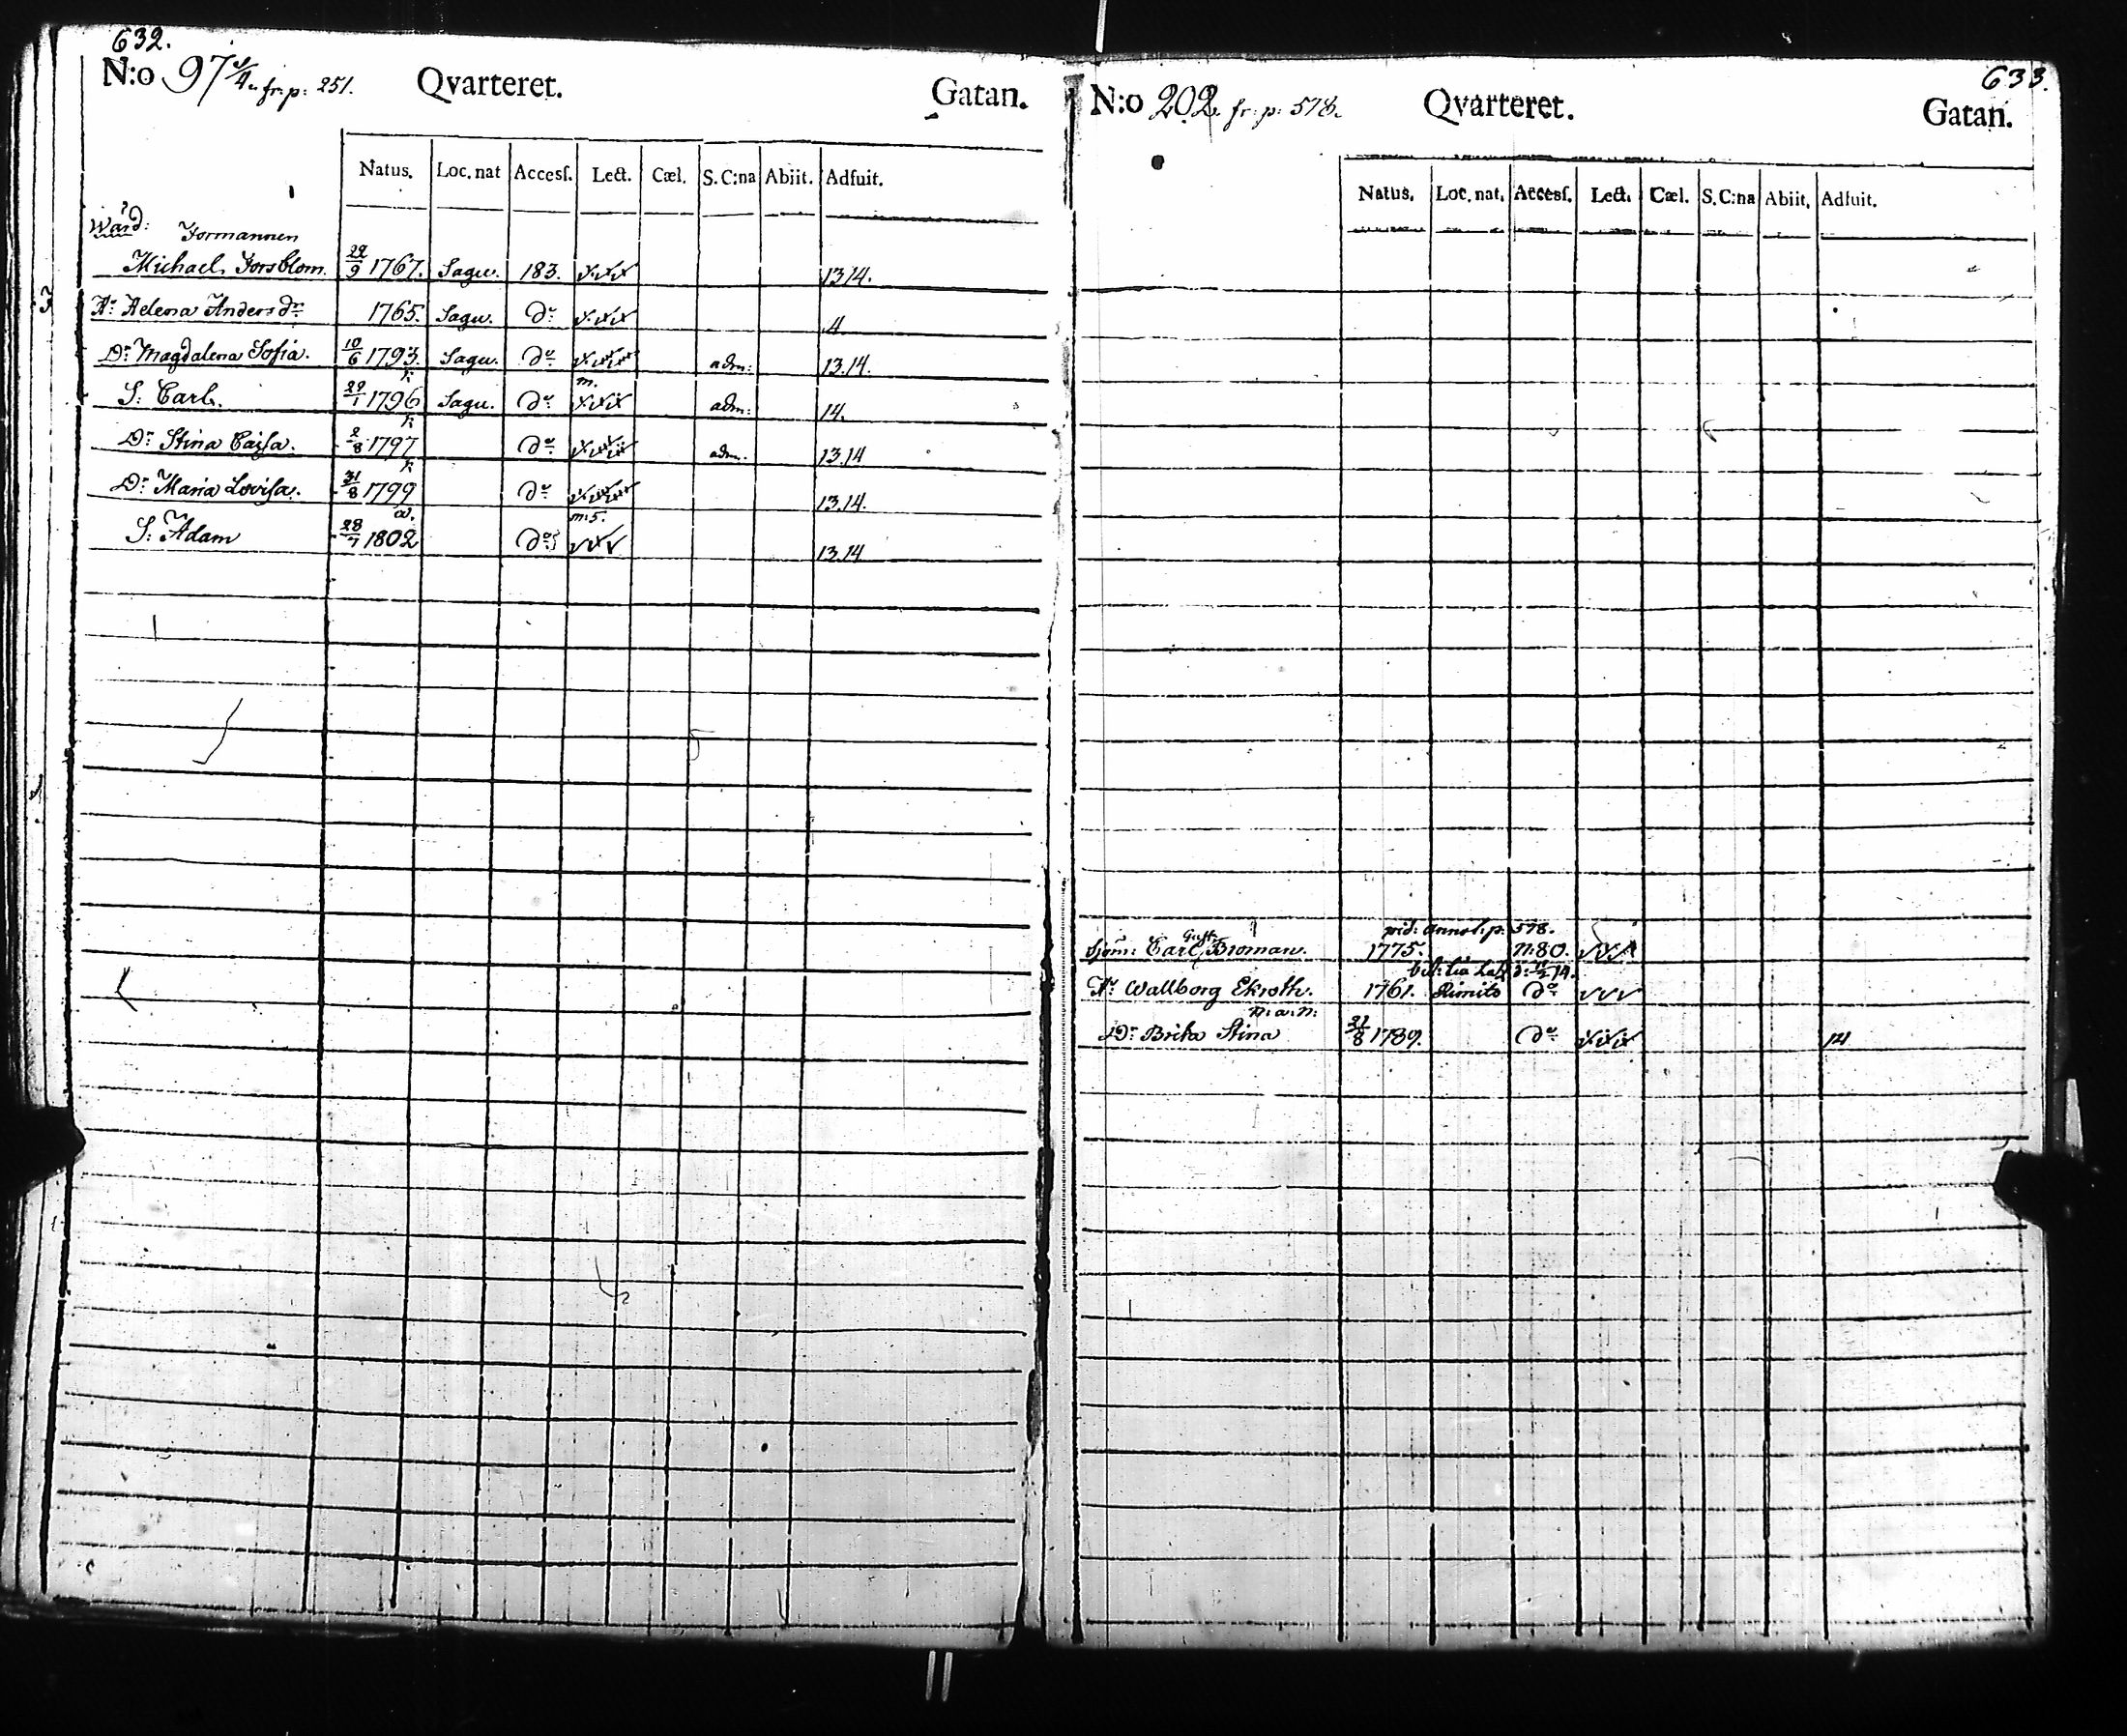 632.
N:o 97 3/4. fr: p: 251. Qvarteret. Gatan.
Natus. Loc. nat Accesſ. Lect. Cæl. S. C:na Abiit. Adfuit.
Wärd: Formannen
Michael Forsblom. 29/9 1767. Sagu. 183. 13.14.
H: Helena Andersdr 1765. Sagu. do 4.
Dr Magdalena Sofia. 10/6 1793. Sagu. do adm: 13.14.
k m.
S: Carl. 29/1 1796 Sagu. do adm: 14.
k
Dr Stina Caisa. 2/8 1797 do adm: 13.14
k
Dr Maria Lovisa. 31/8 1799 do 13.14.
m:5.
S: Adam 28/7 1802 do 13.14
633.
N:o 202. fr: p: 578. Qvarteret. Gatan.
Natus. Loc. nat. Accesſ. Lect. Cæl. S. C:na Abiit. Adfuit.
vid: Annot: p: 578.
Sjöm: Carl Gust: Broman. 1775. n:80.
H: Wallborg Ekroth. 1761. Rimito do
n: a: n:
Dr Brita Stina 21/8 1789. do 14